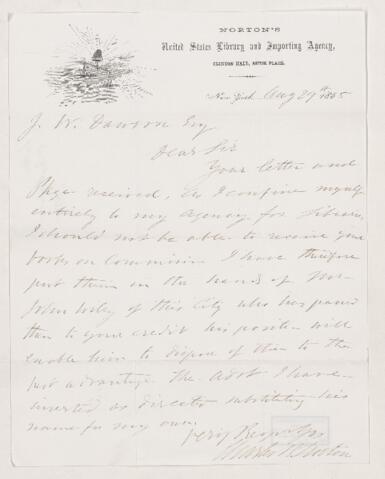 NORTON'S
United States Library and Importing Agency,
CLINTON HALL, ASTOR PLACE.
New York Aug 29th 1855
J. W. Dawson Esq
Dear Sir
Your letter and
Pkge received, as I confine myself
entirely to my agency for Libraries
I should not be able to receive your
books on Commission I have therefore
put them in the hands of Mr
John Wiley of this City who has passed
them to your credit his position will
enable him to dispose of them to the
best advantage. The advt I have
inserted as directed substituting his
name for my own.
Very Respy Yrs
Charles B. Norton